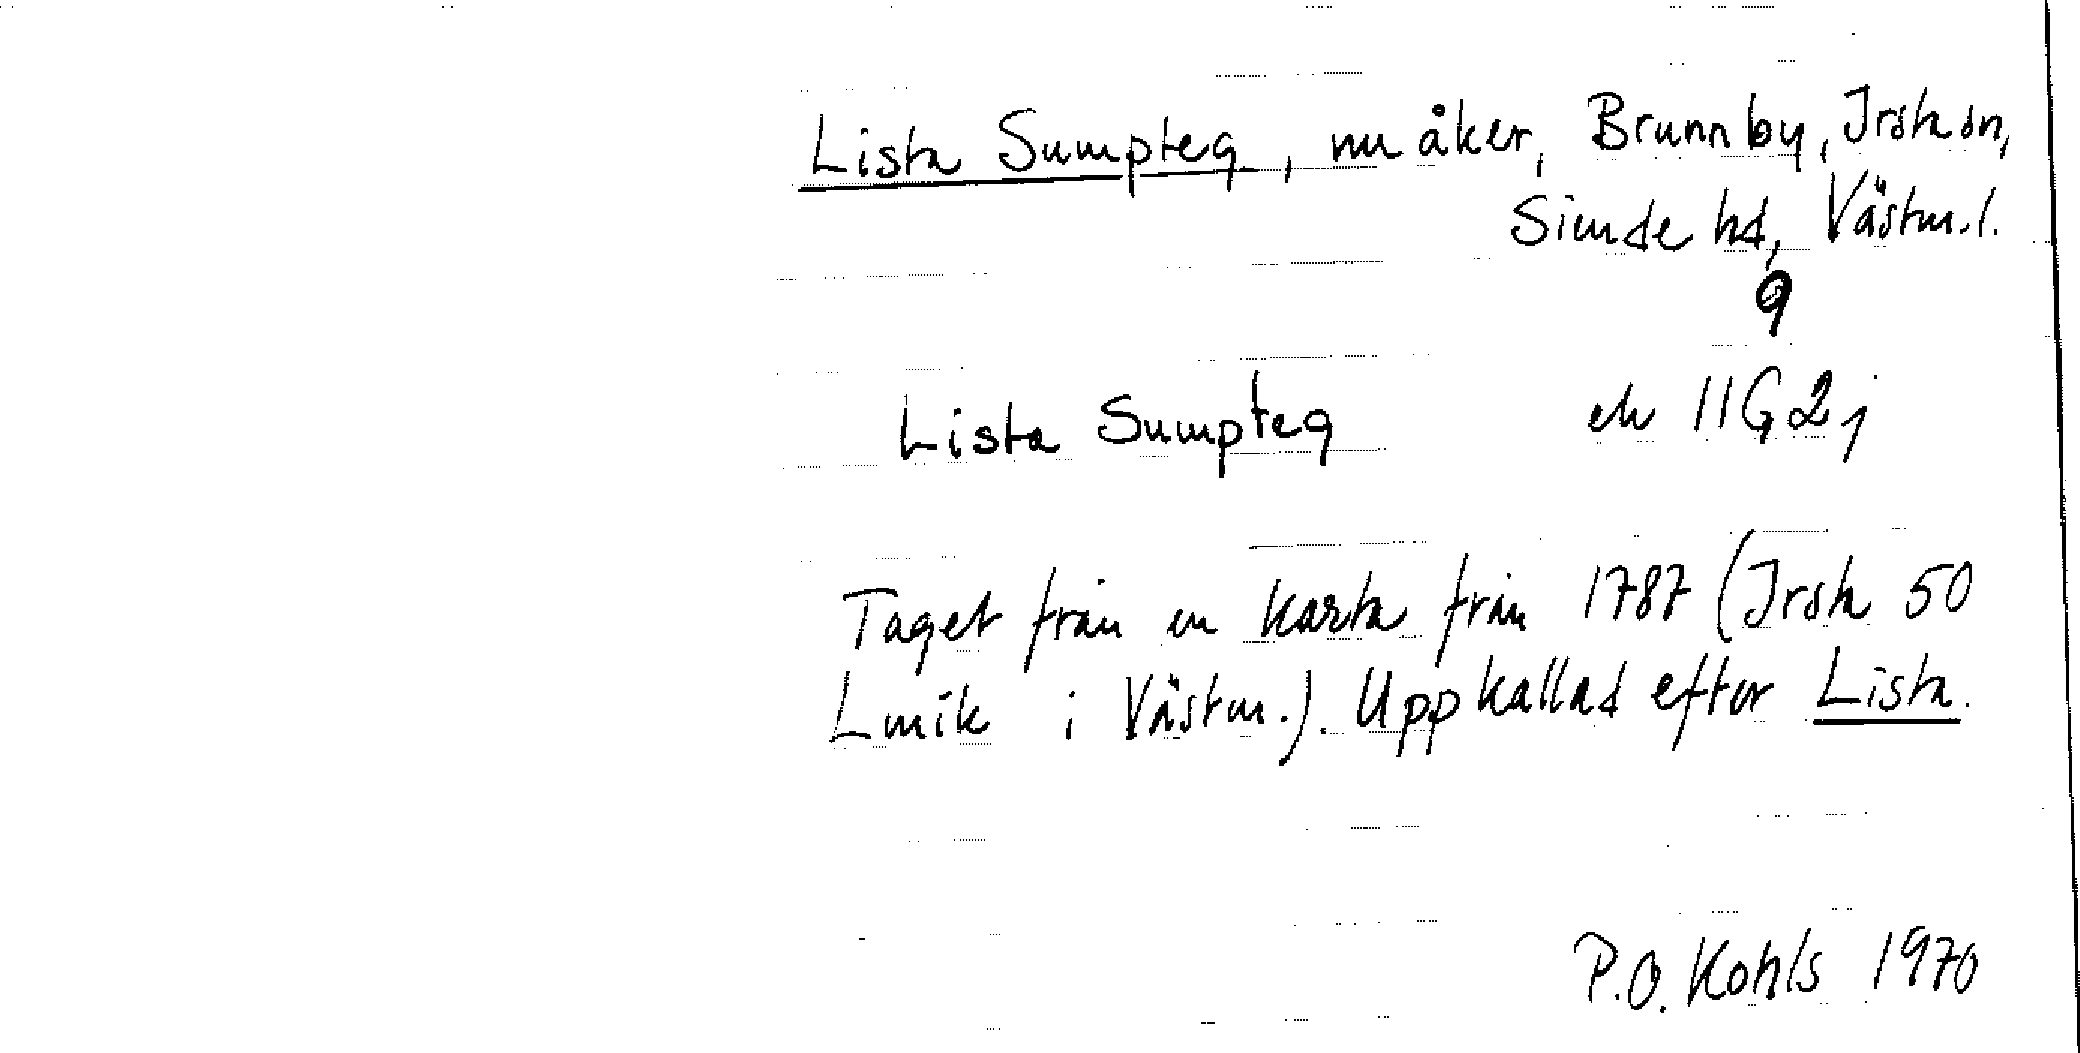 Lista Sumpteg, nu åker, Brunnby, Irsta sn,
Siende hd, Västm.l.
9
Lista Sumpteg ek 11G2j
Taget från en karta från 1787 (Irsta 50
Lmik i Västm.). Uppkallad efter Lista.
P.O. Kohls 1970